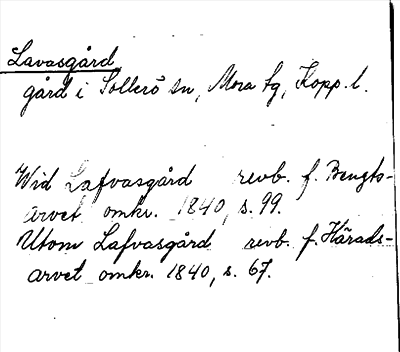 Lavasgård
gård i Sollerö sn, Mora tg, Kopp. l.
Wid Lafvasgård revb. f. Bengts-
arvet omkr. 1840, s. 99.
Utom Lafvasgård revb. f. Härads-
arvet omkr. 1840, s. 67.